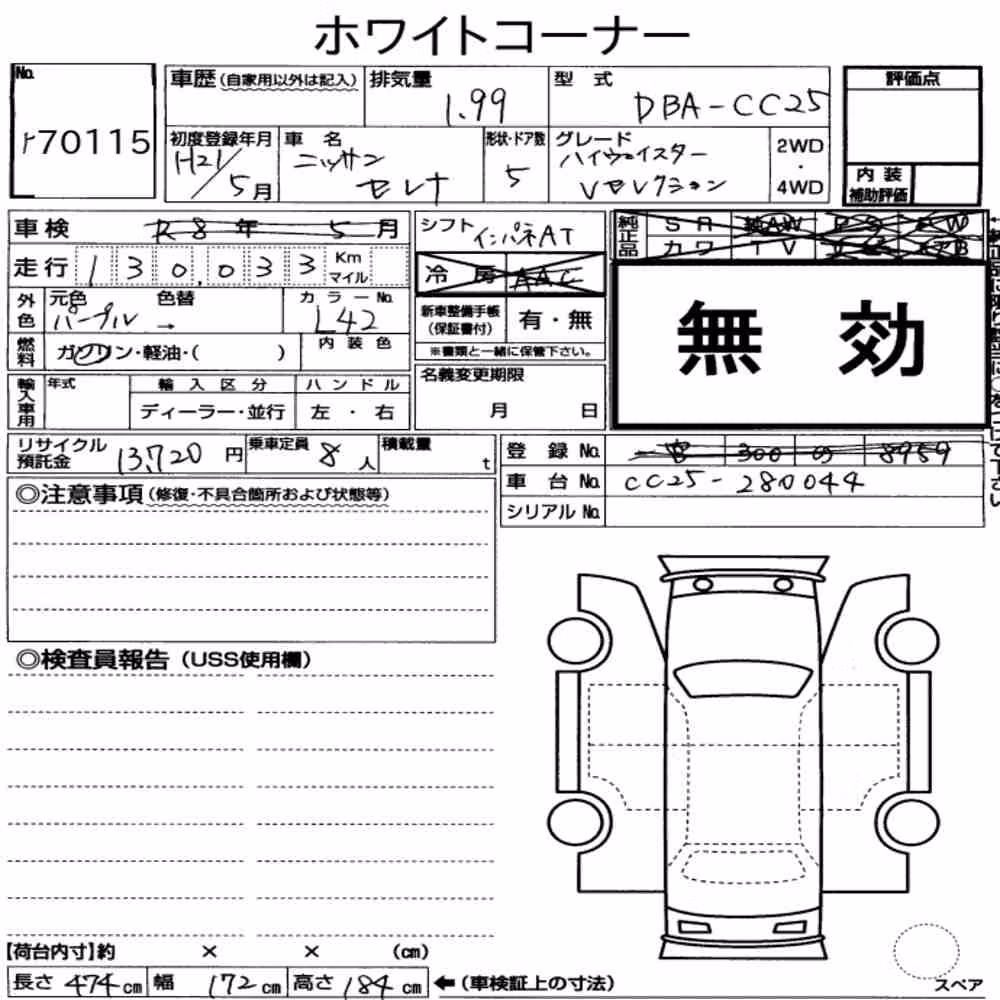 ホワイトコーナー
No.
70115
車歴(自家用以外は記入)
排気量
1.99
型式
DBA-CC25
評価点
初度登録年月
H21/5月
車名
ニッサン
セレナ
形状・ドア数
5
グレード
ハイウェイスター
Vセレクション
2WD
・
4WD
内装
補助評価
車検 R8年 5月
シフト インパネAT
純正品
SR 純AW PS PW
カワ TV
走行 130,033 Km
マイル
冷房 AAC
無効
外色
元色 色替
パープル →
カラーNo.
L42
新車整備手帳
(保証書付)
有・無
※書類と一緒に保管下さい。
燃料
ガソリン・軽油・( )
内装色
輸入車用
年式
輸入区分
ディーラー・並行
ハンドル
左・右
名義変更期限
月 日
リサイクル
預託金
13,720円
乗車定員
8人
積載量
t
登録No. 300 の 8959
車台No. CC25-280044
シリアルNo.
◎注意事項(修復・不具合箇所および状態等)
◎検査員報告(USS使用欄)
【荷台内寸】約 × × (cm)
長さ 474cm 幅 172cm 高さ 184cm ←(車検証上の寸法)
スペア